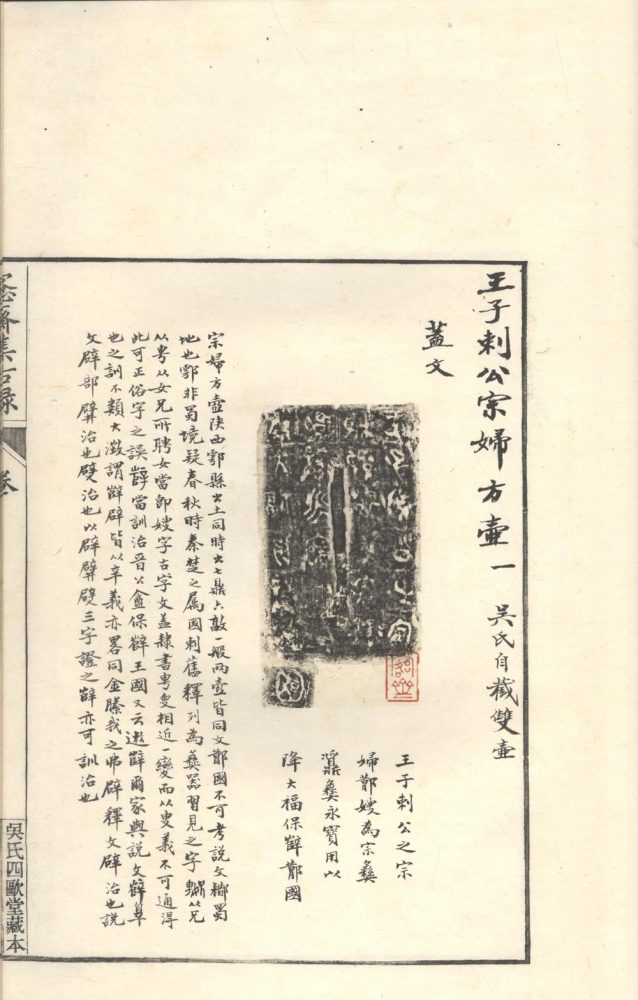 王子刺公宗婦方壺一 吳氏自藏雙壺
蓋文
王子刺公之宗
婦嫂為宗彝
彝永寶用以
降大福保辥國
宗婦方壺陝西鄠縣出土同時出七鼎六敦一般兩壺皆同文國不可考說文蜀
地也鄠非蜀境疑春秋時秦楚之屬國刺舊釋列為彝器習見之字从兄
从甹从女兄所聘女當即嫂字古字文蓋隸書甹叟相近一變而从叟義不可通得
此可正俗字之誤辥當訓治晉公盦保辥王國又云辥爾家與說文辥辠
也之訓不類大澂謂辥辟皆从辛義亦畧同金縢我之弗辟釋文辟治也說
文辟部治也治也以辟三字證之辥亦可訓治也
愙齋集古錄 卷
吳氏四歐堂藏本